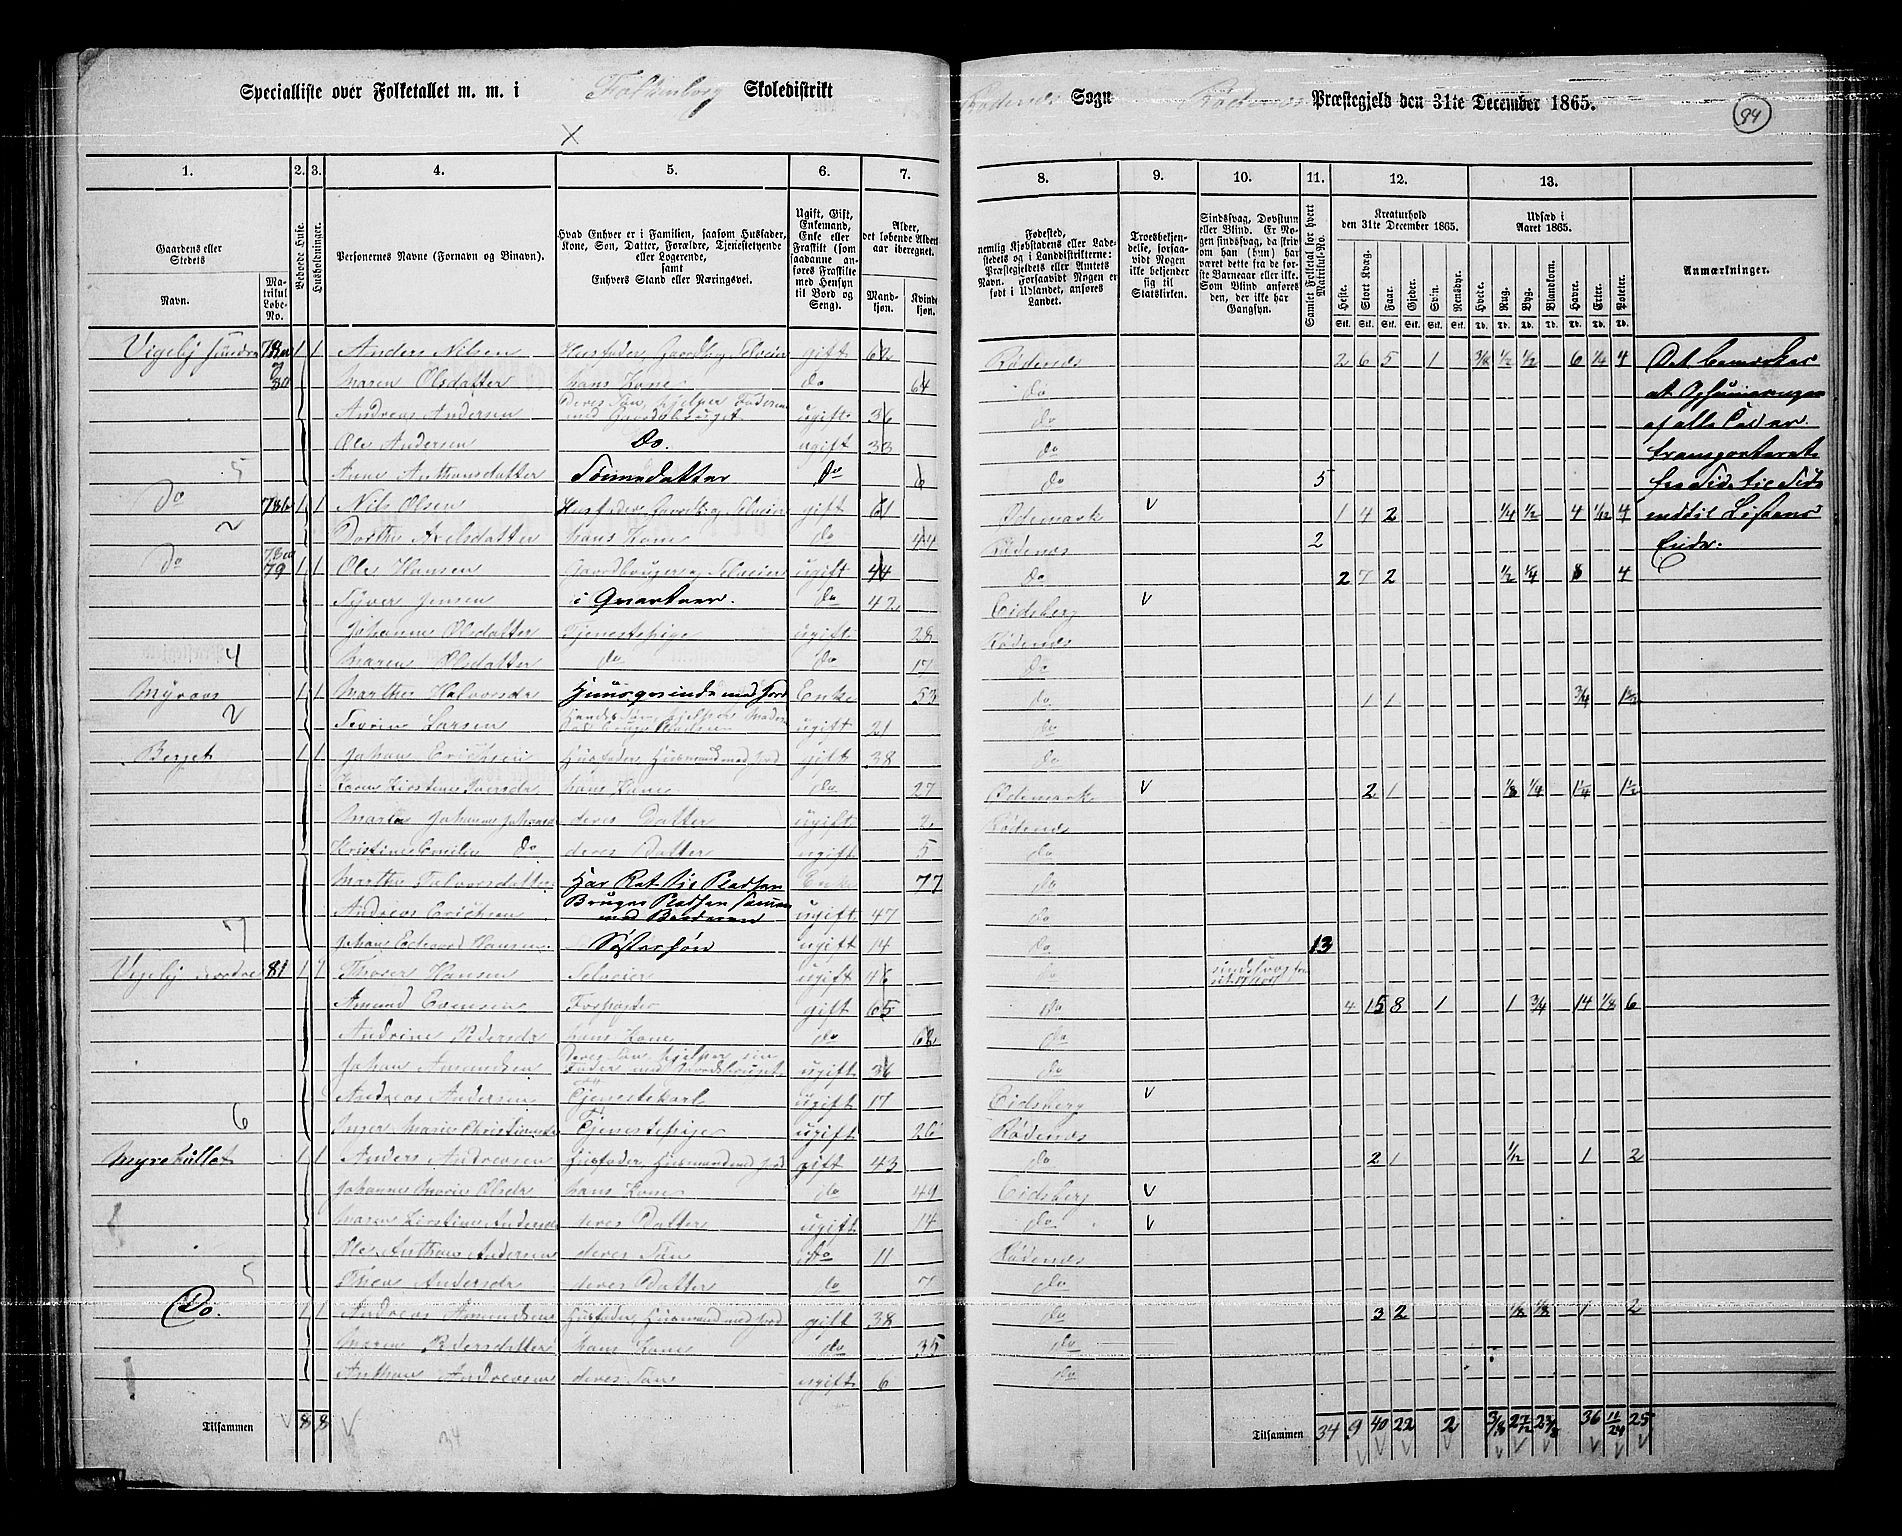 Specialliste over Folketallet m. m. i Faldenborg Skoledistrikt
Rødenes Sogn Rødenes Præstegjeld den 31te December 1865.
94
1. 2. 3. 4. 5. 6. 7.
8. 9. 10. 11. 12. 13.
Gaardens eller Stedets
Navn.
Matrikul Løbe-No.
Beboede Huse.
Husholdninger.
Personernes Navne (Fornavn og Binavn).
Hvad Enhver er i Familien, saasom Husfader, Kone, Søn, Datter, Forældre, Tjenestetyende eller Logerende, samt Enhvers Stand eller Næringsvei.
Ugift, Gift, Enkemand, Enke eller Fraskilt (som saadanne anføres Fraskilte med Hensyn til Bord og Seng).
Alder, det løbende Aldersaar iberegnet.
Mandkjøn. Kvindekjøn.
Fødested, nemlig Kjøbstadens eller Ladestedets og i Landdistrikterne: Præstegjeldets eller Amtets Navn. Forsaavidt Nogen er født i Udlandet, anføres Landet.
Troesbekjendelse, forsaavidt Nogen ikke bekjender sig til Statskirken.
Sindssvag, Døvstum eller Blind. Er Nogen sindssvag, da skrives, om han (hun) har været dette fra de første Barneaar eller ikke. Som Blind anføres den, der ikke har Gangsyn.
Samlet Folketal for hvert Matrikul-No.
Kreaturhold den 31te December 1865.
Heste. Stort Kvæg. Faar. Gjeder. Svin. Rensdyr.
Udsæd i Aaret 1865.
Hvede. Rug. Byg. Blandkorn. Havre. Erter. Poteter.
Anmærkninger.
Vigeby søndre 78a 1 1 Anders Nilsen Husfader, Gaardbr. Selveier gift 62 Rødenes 2 6 5 1 3/8 1/2 1/2 6 1/4 4
80 Maren Olsdatter hans Kone do 64 do
Andreas Andersen deres Søn, hjelper Faderen med Gaardsbruget ugift 36 do
Ole Andersen Do. ugift 33 do
5 Anne Anthonsdatter Sønnedatter Do 6 do 5
Do 78b 1 1 Nils Olsen Husfader, Gaardbr. Selveier gift 61 Ødemark v 1 4 2 1/4 1/2 4 1/12 4
2 Dorthe Axelsdatter hans Kone do 44 Rødenes 2
Do 79 1 1 Ole Hansen Gaardbruger, Selveier ugift 44 do 2 7 2 1/2 1/4 8 4
Syver Jensen i Qvarteer. Do 42 Eidsberg v
Johanne Olsdatter Tjenestepige ugift 28 Rødenes
4 Maren Olsdatter do do 17 Do
Myraas 1 1 Marthe Halvorsdr Huusqvinde med Jord Enke 53 do 1 1 3/4
2 Severin Larsen ugift 21 do
Berget 1 1 Johan Erichsen Husfader, Husmand med Jord gift 38 do
Karen Kirstine Iversdr hans Kone do 27 Ødemark v 2 1 1/8 1/4 1 1/4 1 1/2
Maria Johanne Johansdr deres Datter ugift Rødenes
Kristine Emilie Do deres Datter ugift 5 do
Marthe Halvorsdatter Har Ret til Pladsen Enke 77 do
Andreas Erichsen Bruger Pladsen sammen med Broderen ugift 47 do
7 Johan Edvard Hansen Søstersøn ugift 14 do 13
Vigeby nordre 81 1 1 Hansen Selveier ugift 46 do sindssvag
Amund Evensen Forpagter gift 65 do 4 15 8 1 1 3/4 14 1/8 6
Andrine Pedersdr hans Kone do 62 do
Johan Amundsen Deres Søn, hjelper sin Fader med Gaardsbruget ugift 36 do
Andreas Andersen Tjenestekarl ugift 17 Eidsberg v
6 Inger Marie Tjenestepige ugift 26 Rødenes
Myrekullet 1 1 Anders Andreasen Husfader, Husmand med Jord gift 43 do 2 1 1/12 1 2
Johanne Marie Olsdr hans Kone do 49 Eidsberg v
Maren Kirstine Andersdr deres Datter ugift 14 do v
Ole Anthon Andersen deres Søn do 11 Rødenes
5 Thea Andersdr deres Datter do 7 do
Do. 1 1 Andreas Amundsen Husfader, Husmand med Jord gift 38 do 3 2 1/8 1/8 1 2
Maren Pedersdatter hans Kone do 35 do
Anthon Andreasen deres Søn ugift 6 do
Det bemærkes
at Opsummeringen
af alle Tal er
transporteret
fra Side til Side
indtil Listens
Ende.
Tilsammen 8 8 34
Tilsammen 34 9 40 22 2 3/8 36 11/24 25